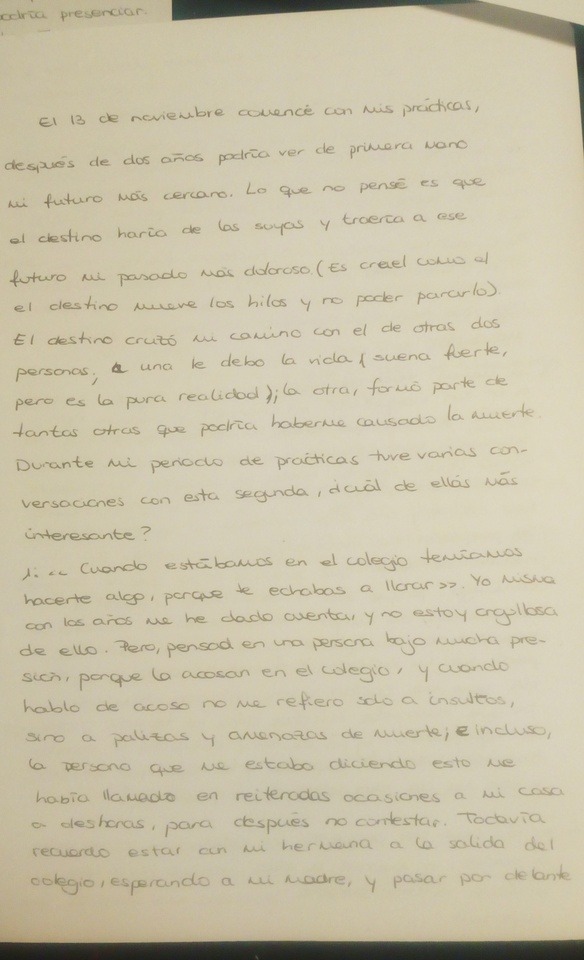 podría presenciar.
El 13 de noviembre comencé con mis prácticas,
después de dos años podría ver de primera mano
mi futuro más cercano. Lo que no pensé es que
el destino haría de las suyas y traería a ese
futuro mi pasado más doloroso. (Es cruel como el
el destino mueve los hilos y no poder pararlo).
El destino cruzó mi camino con el de otras dos
personas; a una le debo la vida (suena fuerte,
pero es la pura realidad); la otra, formó parte de
tantas otras que podría haberme causado la muerte.
Durante mi periodo de prácticas tuve varias con-
versaciones con esta segunda, ¿cuál de ellas más
interesante?
1: << Cuando estábamos en el colegio temíamos
hacerte algo, porque te echabas a llorar >>. Yo misma
con los años me he dado cuenta, y no estoy orgullosa
de ello. Pero, pensad en una persona bajo mucha pre-
sión, porque la acosan en el colegio, y cuando
hablo de acoso no me refiero solo a insultos,
sino a palizas y amenazas de muerte; e incluso,
la persona que me estaba diciendo esto me
había llamado en reiteradas ocasiones a mi casa
a deshoras, para después no contestar. Todavía
recuerdo estar con mi hermana a la salida del
colegio, esperando a mi madre, y pasar por delante